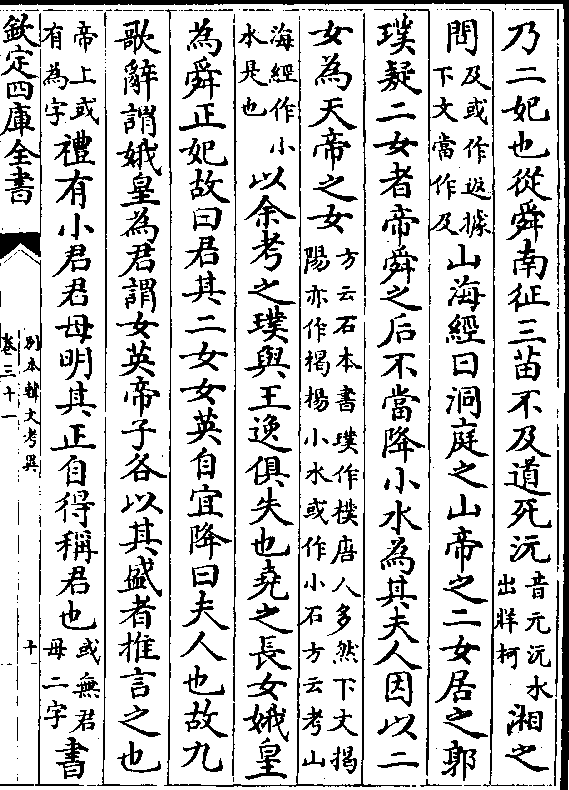 乃二妃也從舜南征三苗不及道死沅音元沅水出牂柯湘之
間及或作返據下文當作及山海經曰洞庭之山帝之二女居之郭
璞疑二女者帝舜之后不當降小水為其夫人因以二
女為天帝之女方云石本書璞作樸唐人多然下文揭陽亦作楬楊小水或作小石方云考山
海經作小水是也以余考之璞與王逸俱失也堯之長女娥皇
為舜正妃故曰君其二女女英自宜降曰夫人也故九
歌辭謂娥皇為君謂女英帝子各以其盛者推言之也
帝上或有為字禮有小君君母明其正自得稱君也或無君母二字書
欽定四庫全書
別本韓文考異
卷三十一
十